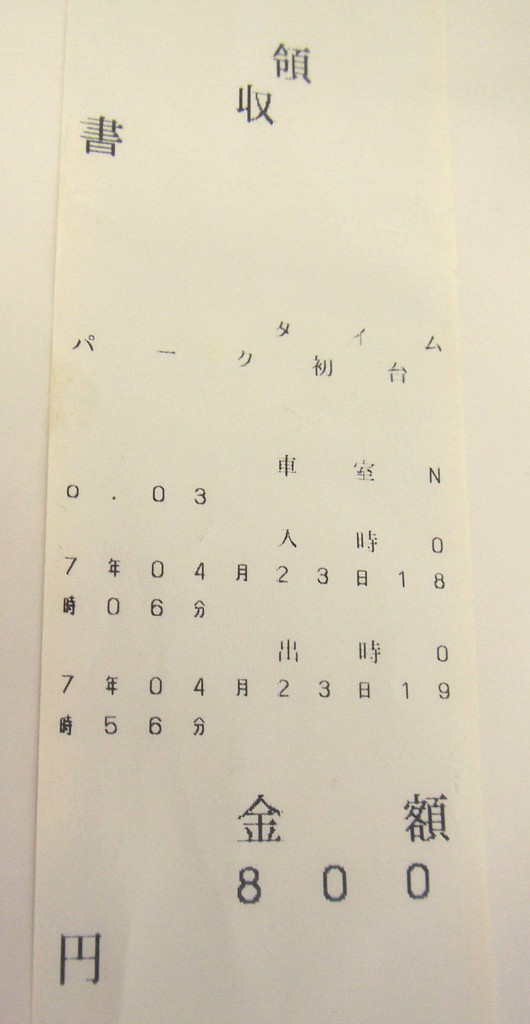 領
収
書
タイム
パーク
初台
車室N
o.03
入時0
7年04月23日18
時06分
出時0
7年04月23日19
時56分
金額
800
円